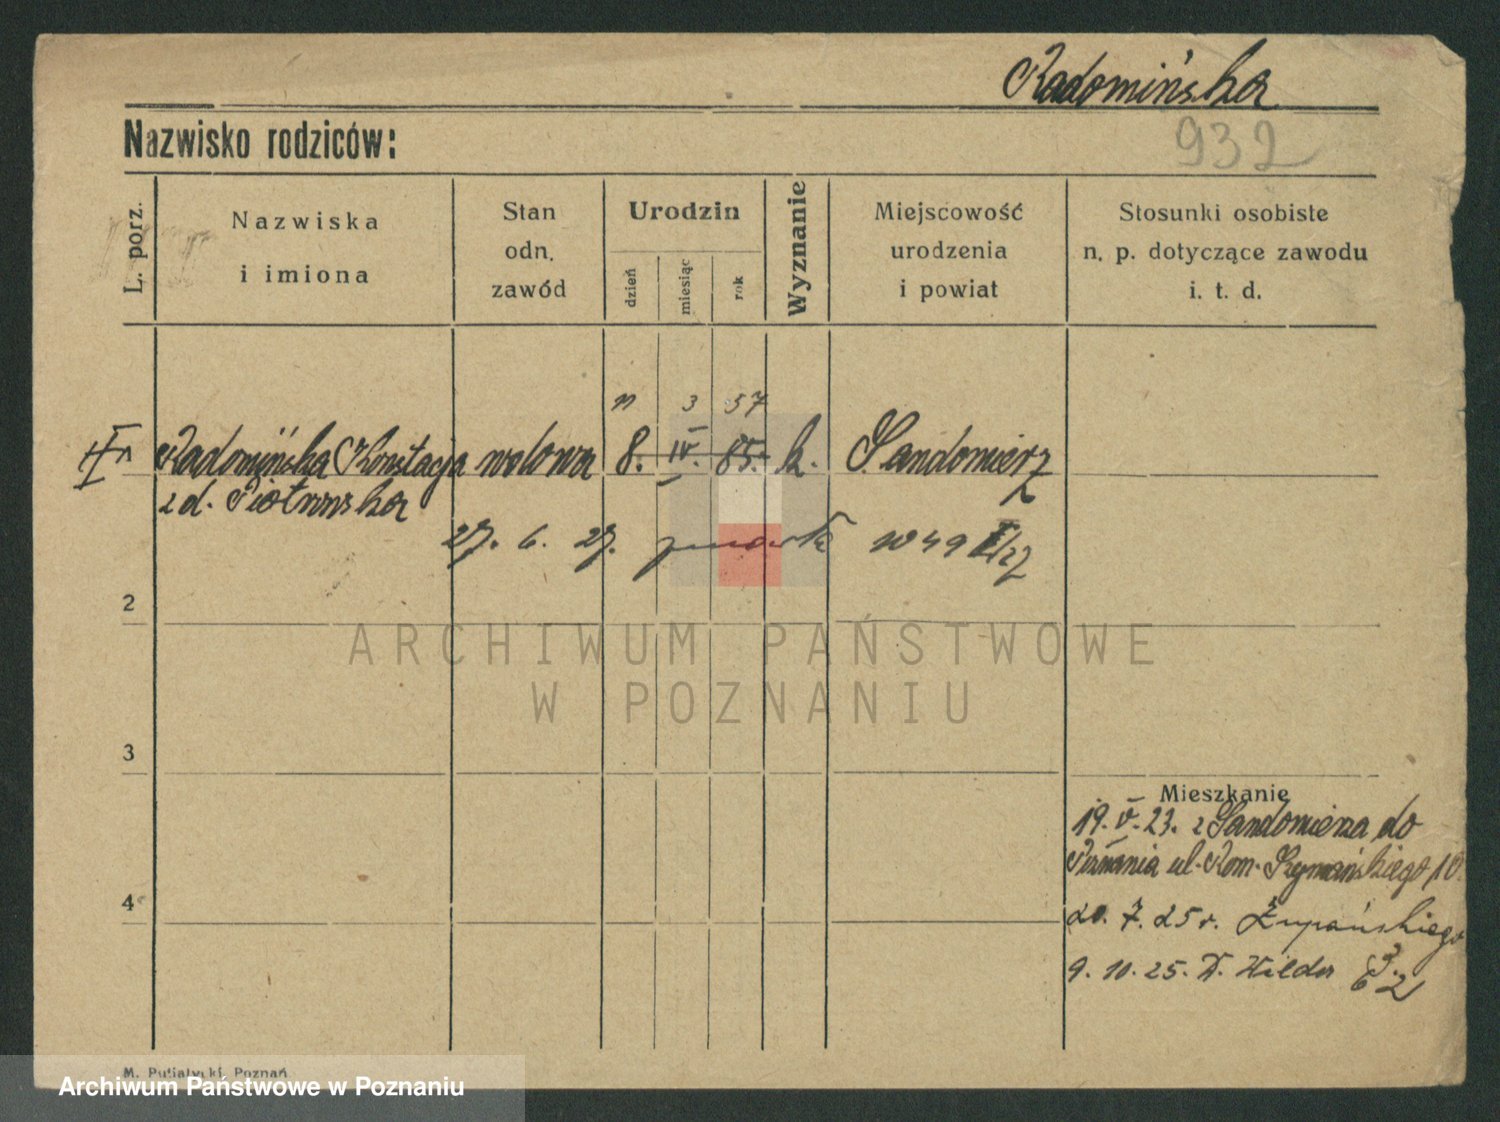 Radomińska
Nazwisko rodziców:
932
L. porz.
Nazwiska
i imiona
Stan
odn.
zawód
Urodzin
dzień
miesiąc
rok
Wyznanie
Miejscowość
urodzenia
i powiat
Stosunki osobiste
n. p. dotyczące zawodu
i. t. d.
11 3 57
Radomińska Konstacja wdowa 8. IV. 85. k. Sandomierz
z d. Piotrowska
27. 6. 27. zmarła 1049
2
ARCHIWUM PAŃSTWOWE
W POZNANIU
3
Mieszkanie
19. V. 23. z Sandomierza do
Poznania ul. Rom. Szymańskiego 10.
4
20. 7. 25 r. Żupańskiego
9. 10. 25.
M. Putiatycki, Poznań.
Archiwum Państwowe w Poznaniu